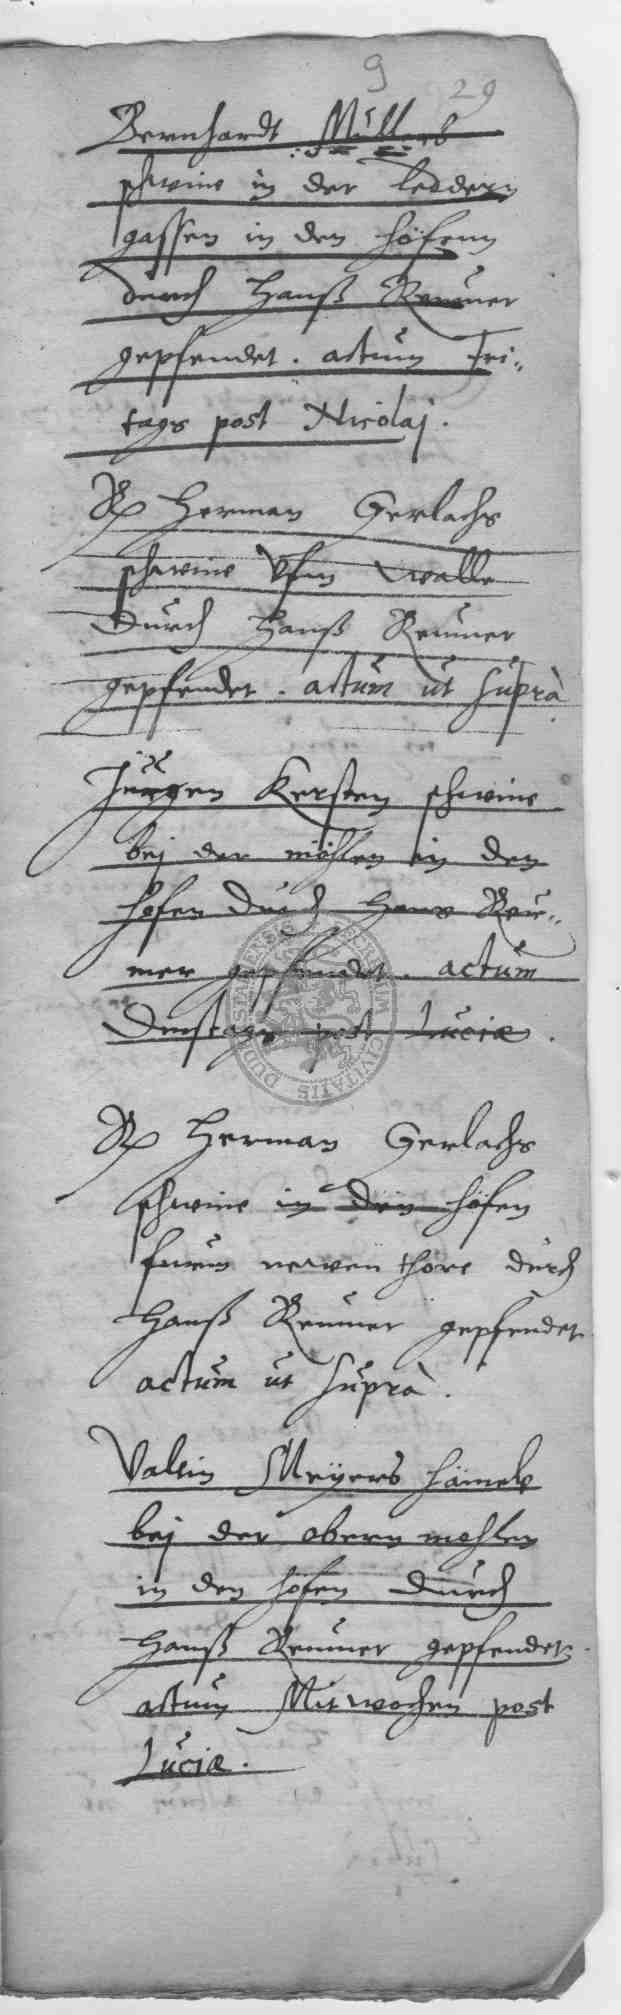 9 29
Bernhardt Müllers
schwine in der leddern
gassen in den höfenn
durch Hanß Remmer
gepfendet. actum Fri-
tags post Nicolaj.
Herman Gerlachs
schwine Vfm walle
Durch Hanß Remmer
gepfendet. actum ut suprà
Jürgen Kersten schwine
bej der möhlen in den
höfen durch Hans Rem-
mer gepfendet. actum
Dinstags post Luciæ.
Herman Gerlachs
schwine in den höfen
furm newen thore durch
Hanß Remmer gepfendet
actum ut suprà.
Valtin Meÿers hämels
bej der obern mohlen
in den höfen durch
Hanß Remmer gepfendet
actum Mitwochen post
Luciæ.